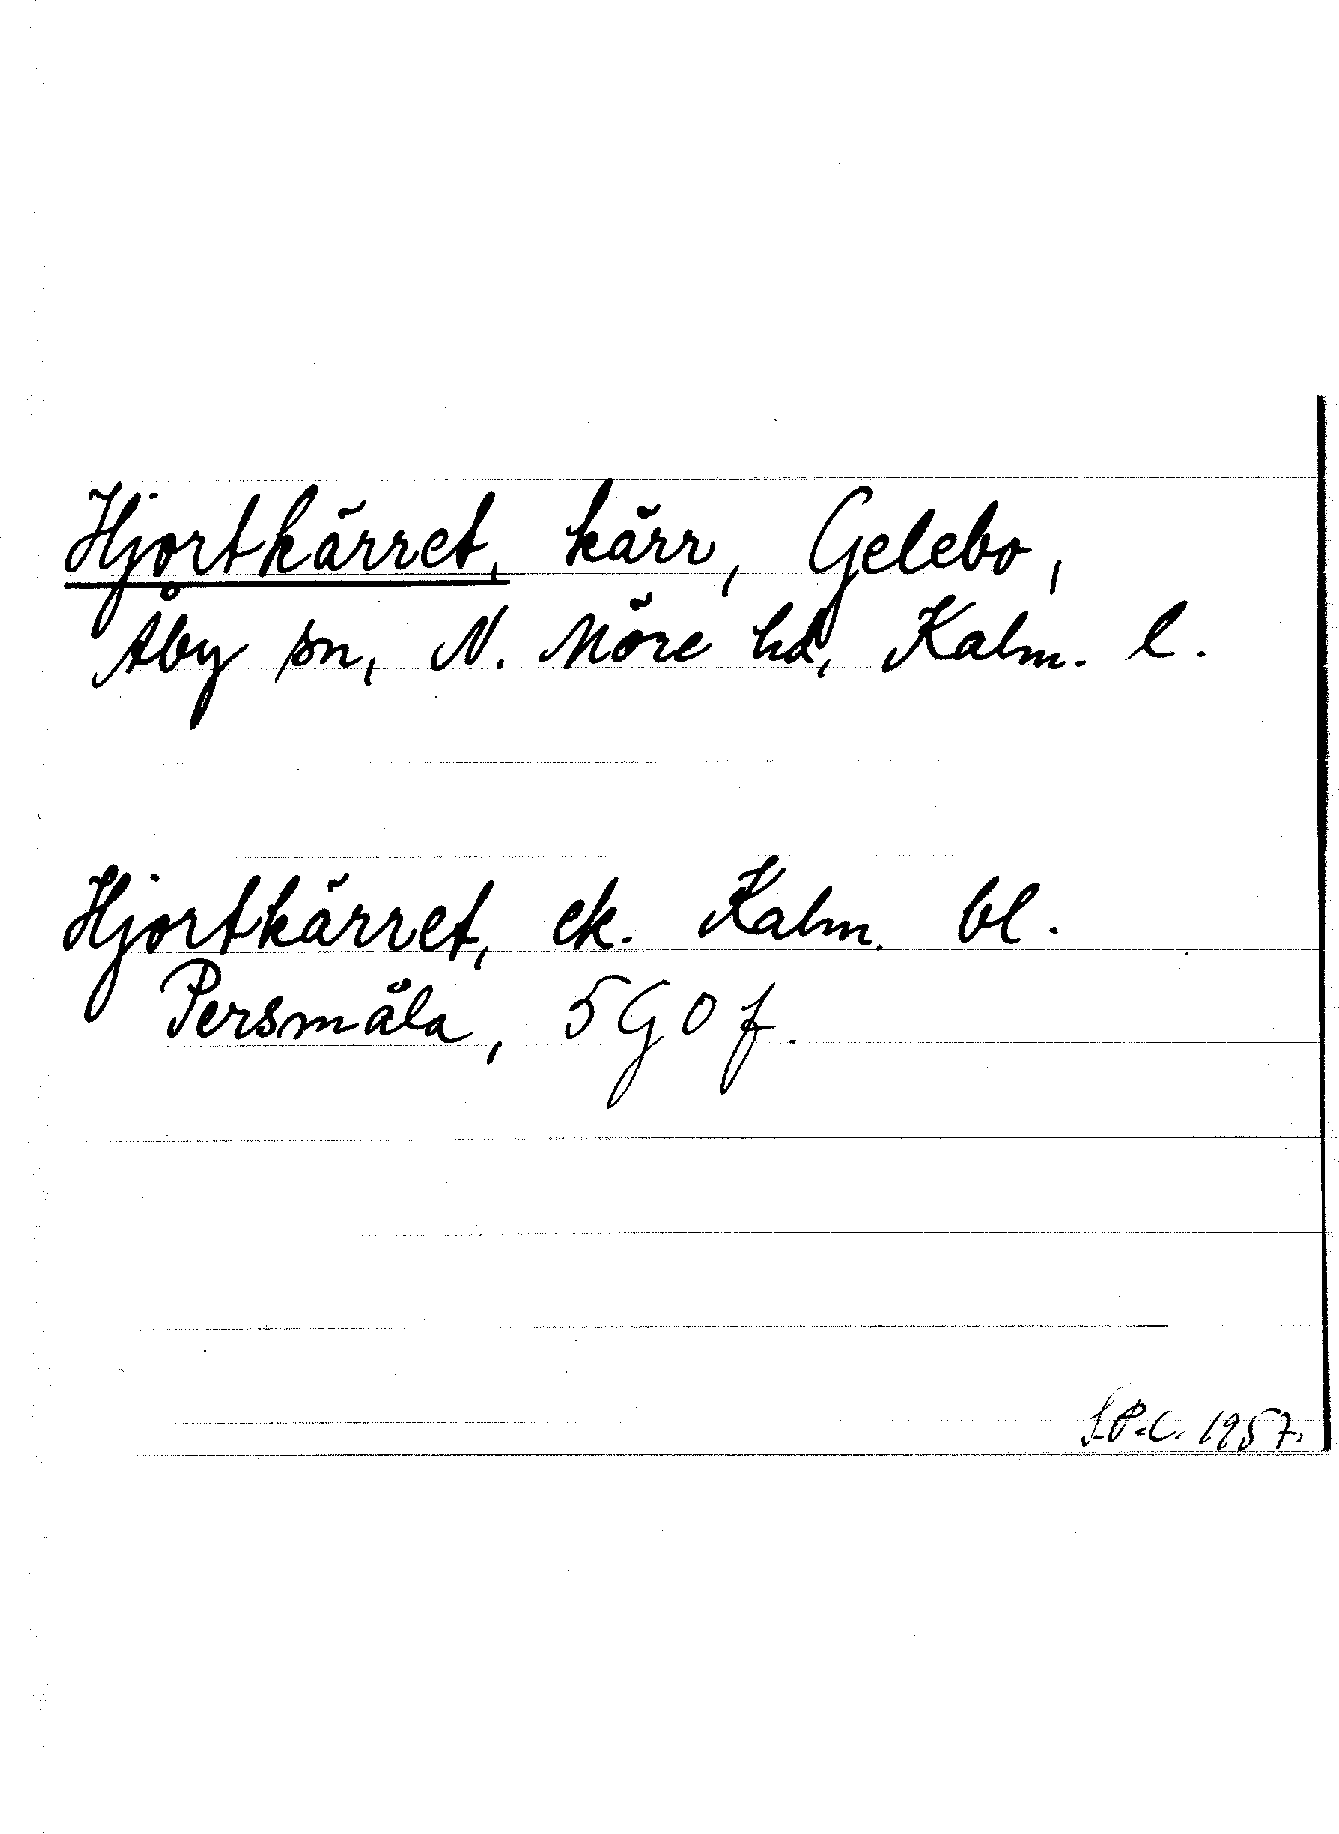 Hjortkärret, kärr, Gelebo,
Åby sn, N. Möre hd, Kalm. l.
Hjortkärret, ek. Kalm. bl.
Persmåla, 5G0f.
S.P.C. 1957.